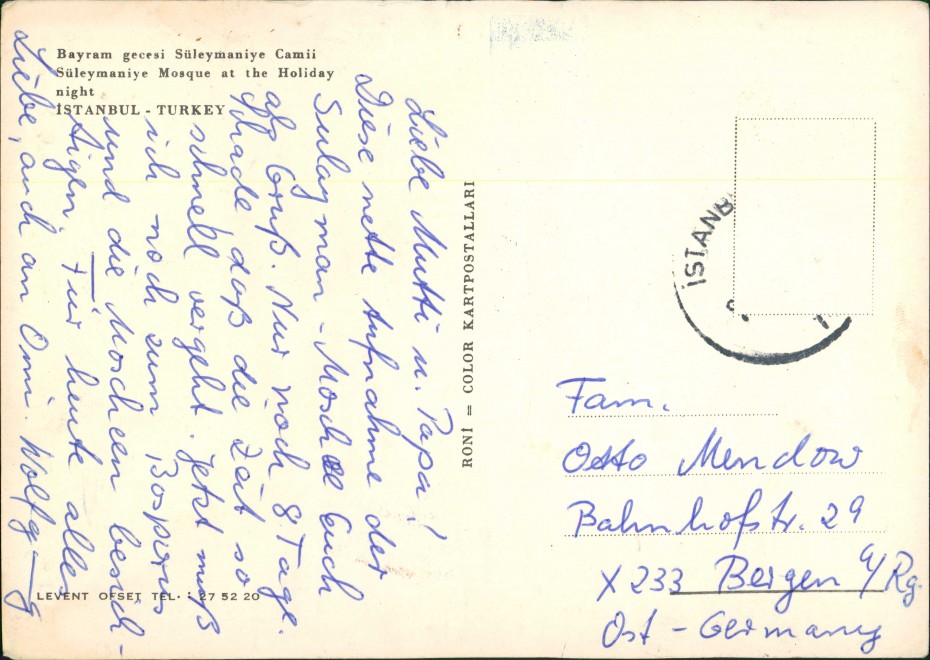 Bayram gecesi Süleymaniye Camii
Süleymaniye Mosque at the Holiday
night
İSTANBUL - TURKEY
Liebe Mutti u. Papa!
Diese nette Aufnahme der
Sulayman-Moschee Euch
als Gruß. Nur noch 8 Tage.
Schade daß die Zeit so
schnell vergeht. Jetzt muß
ich noch zum Bosporus
und die Moscheen besich-
tigen. Für heute alles
Liebe, auch an Omi. Wolfg
RONİ = COLOR KARTPOSTALLARI
LEVENT OFSET TEL. : 27 52 20
İSTANB
Fam.
Otto Mendow
Bahnhofstr. 29
X 233 Bergen a/Rg.
Ost - Germany